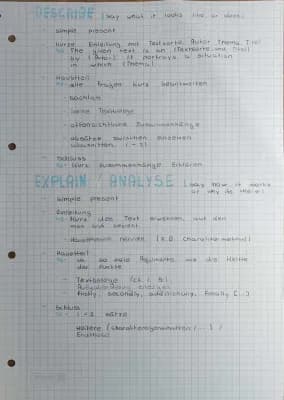 DESCRIBE | say what it looks like or does.
- simple present
- kurze Einleitung mit Textsorte, Autor, Thema, Titel
The given text is an (Textsorte und Titel)
by (Autor). It portrays a situation
in which (Thema).
- Hauptteil
alle Fragen kurz beantworten
- sachlich
- keine
- offensichtliche Zusammenhänge
- Absätze zwischen einzelnen
Abschnitten (1-3)
- Schluss
kurz Zusammenhänge erklären
EXPLAIN / ANALYSE | say how it works
or why its there
- simple present
- Einleitung
kurz den Text erwähnen, auf den
man sich bezieht
- nennen (z.B. Charaktermerkmal)
- Hauptteil
so viele Argumente wie die Hälfte
der Punkte
- Textbelege (cf. l. 5),
firstly, secondly, additionally, finally [...]
- Schluss
1-2 Sätze